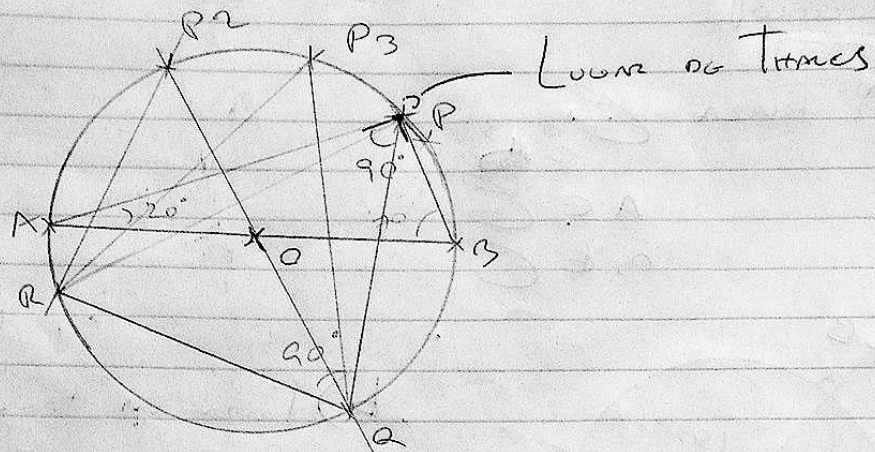 P2
P3
LUGAR DE THALES
P
P
90°
A
20°
70
O
B
R
90°
Q